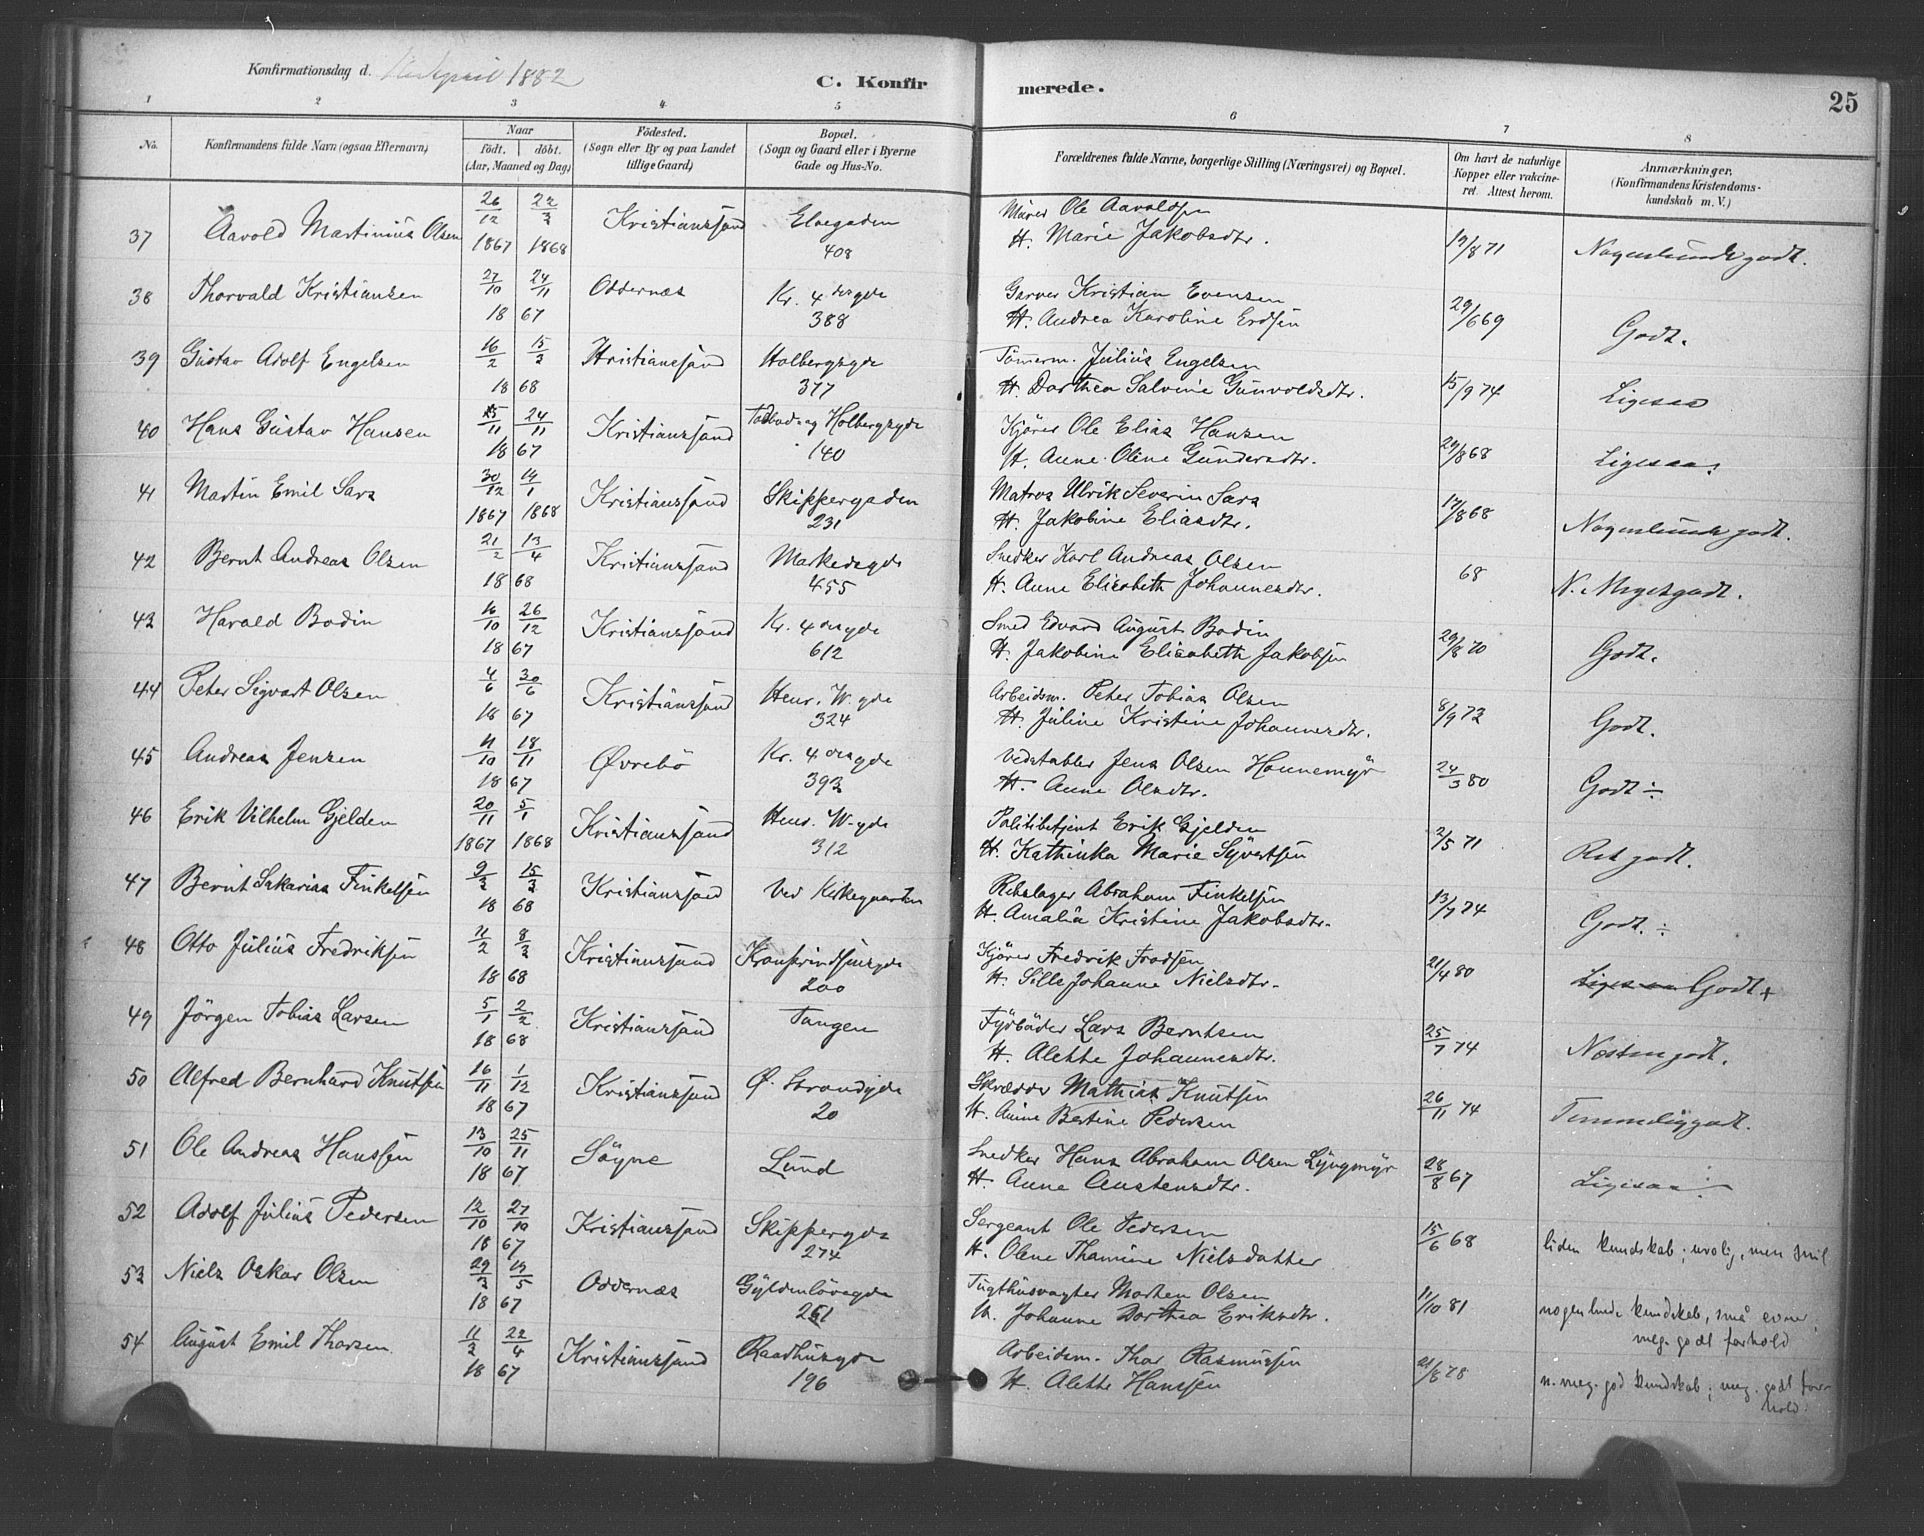 Konfirmationsdag d. 1882
C. Konfirmerede.
25
1 2 3 4 5 6 7 8
No. Konfirmandens fulde Navn (ogsaa Efternavn) Naar födt. döbt. (Aar, Maaned og Dag) Födested. (Sogn eller By og paa Landet tillige Gaard) Bopæl. (Sogn og Gaard eller i Byerne Gade og Hus-No. Forældrenes fulde Navne, borgerlige Stilling (Næringsvei) og Bopæl. Om havt de naturlige Kopper eller vakcineret. Attest herom. Anmærkninger. (Konfirmandens Kristendomskundskab m. V.)
37 Aavold Martinius Olsen 26/12 1867 22/3 1868 Kristianssand Elvegaden 408 Murer Ole Aavoldsen
H. Marie Jakobsdtr. 19/8 71 Nogenlunde godt.
38 Thorvald Kristiansen 27/10 24/11 18 67 Oddernæs Kr. 4 des gde 388 Garver Kristian Evensen
H. Andrea Karoline Erdsen 29/6 69 Godt.
39 Gustav Adolf Engelsen 16/2 15/3 18 68 Kristianssand Holbergsgde 377 Tömerm. Julius Engelsen
H. Dorthea Salvine Gunvoldsdtr. 15/9 74 Ligesaa
40 Hans Gustav Hansen 15/11 24/11 18 67 Kristianssand Holbergsgde 140 Kjörer Ole Elias Hansen
H. Anne Oline Gundersdtr. 29/8 68 Ligesaa
41 Martin Emil Sars 30/12 1867 14/1 1868 Kristianssand Skippergaden 231 Matros Ulrik Severin Sars
H. Jakobine Eliasdtr. 17/8 68 Nogenlunde godt.
42 Bernt Andreas Olsen 21/2 13/4 18 68 Kristianssand Markedsgde 455 Snedker Karl Andreas Olsen
H. Anne Elisabeth Johannesdtr. 68 N. Megetgodt.
43 Harald Bodin 16/10 26/12 18 67 Kristianssand Kr. 4 des gde 612 Smed Edvard August Bodin
H. Jakobine Elisabeth Jakobsen 29/8 70 Godt.
44 Peter Sigvart Olsen 4/6 30/6 18 67 Kristianssand Henr. W. gde 324 Arbeidsm. Peter Tobias Olsen
H. Juline Kristine Johannesdtr. 8/9 72 Godt.
45 Andreas Jensen 11/10 18/11 18 67 Øvrebö Kr. 4 des gde 393 Vedstabler Jens Olsen Honnemyr
H. Anne Olsdtr. 24/3 80 Godt ÷
46 Erik Vilhelm Gjelden 20/11 1867 5/1 1868 Kristianssand Henr. W. gde 312 Politibetjent Erik Gjelden
H. Kathinka Marie Syvertsen 2/5 71 Ret godt.
47 Bernt Sakarias Finkelsen 9/2 15/3 18 68 Kristianssand Ved Kirkegaarden Rebslager Abraham Finkelsen
H. Amalia Kristine Jakobsdtr. 13/7 74 Godt. ÷
48 Otto Julius Fredriksen 11/2 8/3 18 68 Kristianssand Kronprindsensgde 200 Kjörer Fredrik Frodsen
H. Sille Johanne Nielsdtr. 21/4 80 Ligesaa Godt +
49 Jörgen Tobias Larsen 5/1 2/2 18 68 Kristianssand Tangen Fyrböder Lars Berntsen
H. Alette Johannesdtr. 25/7 74 Næsten godt.
50 Alfred Bernhard Knutsen 16/11 1/12 18 67 Kristianssand Ø. Strandgde 20 Skrædder Mathias Knutsen
H. Anne Bertine Pedersen 26/11 74 Temmeliggodt.
51 Ole Andreas Hanssen 13/10 25/11 18 67 Söyne Lund Snedker Hans Abraham Olsen Lyngmyr
H. Anne Austensdtr. 28/8 67 Ligesaa
52 Adolf Julius Pedersen 12/10 27/10 18 67 Kristianssand Skippergde 274 Sergeant Ole Pedersen
H. Oline Thamine Nielsdatter 15/6 68 liden kundskab; urolig, men snil
53 Niels Oskar Olsen 29/3 19/5 18 67 Oddernæs Gyldenlövesgde 261 Tugthusvagter Morten Olsen
H. Johanne Dorthea Eriksdtr. 11/10 81 nogenlunde kundskab, små evner; meg. godt forhold
54 August Emil Thorsen 11/2 22/4 18 67 Kristianssand Raadhusgde 196 Arbeidsm. Thor Rasmussen
H. Alette Hanssen 21/8 78 n. meg. god kundskab; meg. godt forhold.